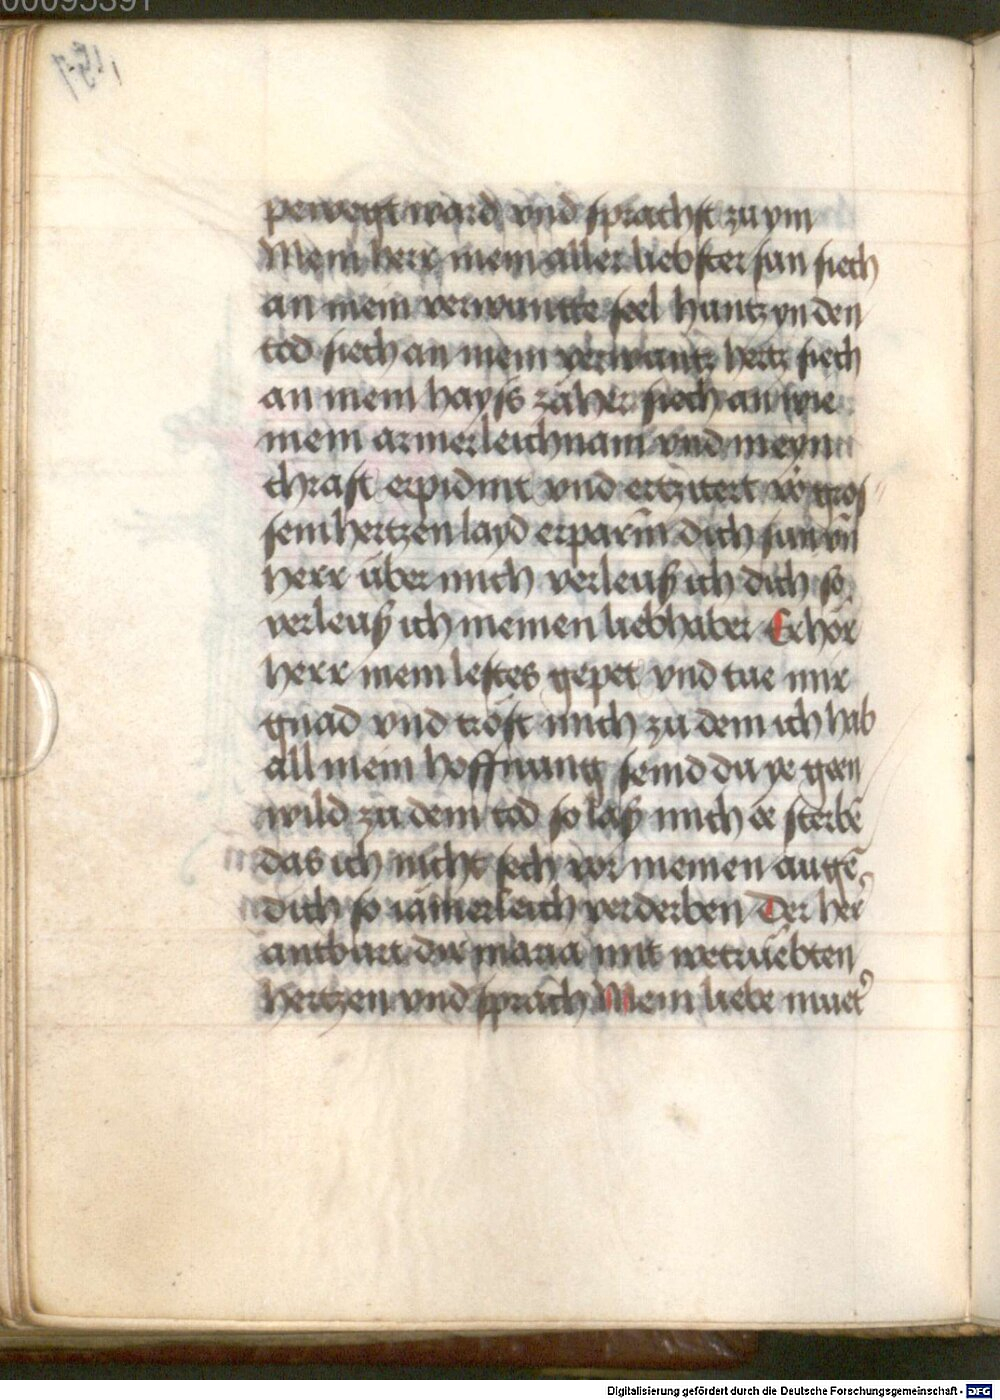 00095391
pewegt ward vnd sprachst zu ym
Mein herr mein aller liebster sun siech
an mein verwuntte seel huntz yn den
tod siech an mein verwuntz hertz siech
an mein hayss zäher siech an wie
mein armer leichnam vnd meyn
chraft erpidmt vnd ertzitert vō gros
sem hertzen layd erparm̄ dich sun vn̄
herr über mich verleuß ich dich so
verleuß ich meinen liebhaber Erhör
herr mein lestes gepet vnd tue mir
gnad vnd tröst mich zu dem ich hab
all mein hoffnung seind du ye geen
wild zu dem tod so laß mich ee sterbē
das ich nicht sech vor meinen augē
dich so iämerleich verderben Der her̄
antburt dir maria mit wetrüebten
hertzen vnd sprach Mein liebe muet᾽
Digitalisierung gefördert durch die Deutsche Forschungsgemeinschaft - DFG